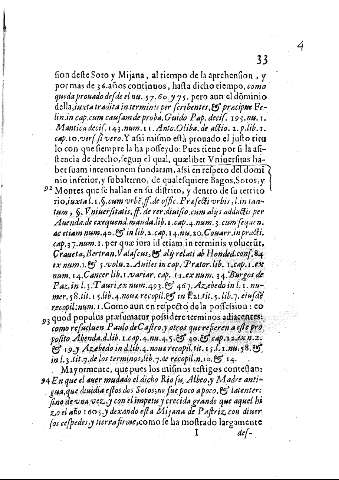 4
33
sion deste Soto y Mijana, al tiempo de la aprehension, y
por mas de 36. años continuos, hasta dicho tiempo, como
queda prouado desde el nu. 57. 60 y 75. pero aun el dominio
della, iuxta tradita in terminis per scribentes, & præcipue Fe-
lin. in cap. cum causam de proba. Guido Pap. decis. 195. nu. 1.
Mantica decis. 143. num. 11. Anto. Oliba. de actio. 2. p. lib. 1.
cap. 10. vers. si vero. Y assi mismo està prouado el justo titu
lo con que siempre la ha posseydo: Pues tiene por si la assi-
stencia de derecho, segun el qual, quælibet Vniuersitas ha-
bet suam intentionem fundatam, assi en respecto del domi
nio inferior, y subalterno, de qualesquiere Bagos, Sotos, y
92 Montes que se hallan en su distrito, y dentro de su territo
rio, iuxta l. 1. §. cum vrbē, ff. de offic. Præfecti vrbis, l. in tan-
tum, §. Vniuersitatis, ff. de rer. diuiso. cum alijs adductis per
Auenda. de exequend. manda. lib. 1. cap. 4. num. 3. cum sequen.
ac etiam num. 40. & in lib. 2. cap. 14. nu. 20. Couar. in practi.
cap. 37. num. 2. per quæ iura id etiam in terminis voluerūt,
Craueta, Bertran, Valascus, & alij relati ab Honded. conf. 84
ex num. 7. & 25. volu. 2. Auiles in cap. Prætor. lib. 1. cap. 1. ex
num. 14. Cancer lib. 1. variar. cap. 12. ex num. 34. Burgos de
Paz, in l. 3. Tauri, ex num. 493. & 467. Azebedo in l. 1. nu-
mer. 58. tit. 15. lib. 4. noua recopil. & in l. 21. tit. 5. lib. 7. eiusdē
recopil. num. 1. Como aun en respecto de la possession: eo
quod populus præsumatur possidere terminos adiacentes:
93 como resueluen Paulo de Castro, y otros que refieren a este pro
posito Abenda. d. lib. 1. cap. 4. nu. 5. & 40. & cap. 12. ex nu. 2.
& 19. y Azebedo in d. lib. 4. noua recopil. tit. 15. l. 2. nu. 58. &
in l. 3. tit. 7. de los terminos, lib. 7. de recopil. n. 10. & 14.
Mayormente, que pues los mismos testigos contestan:
94 En que el auer mudado el dicho Rio su Albeo, y Madre anti-
gua, que diuidia estos dos Sotos: no fue poco a poco, & latenter:
sino de vna vez, y con el impetu y crecida grande que aquel hi
zo, el año 1605. y dexando esta Mijana de Pastriz, con diuer
sos cespedes, y tierra firme, como se ha mostrado largamente
I
des-